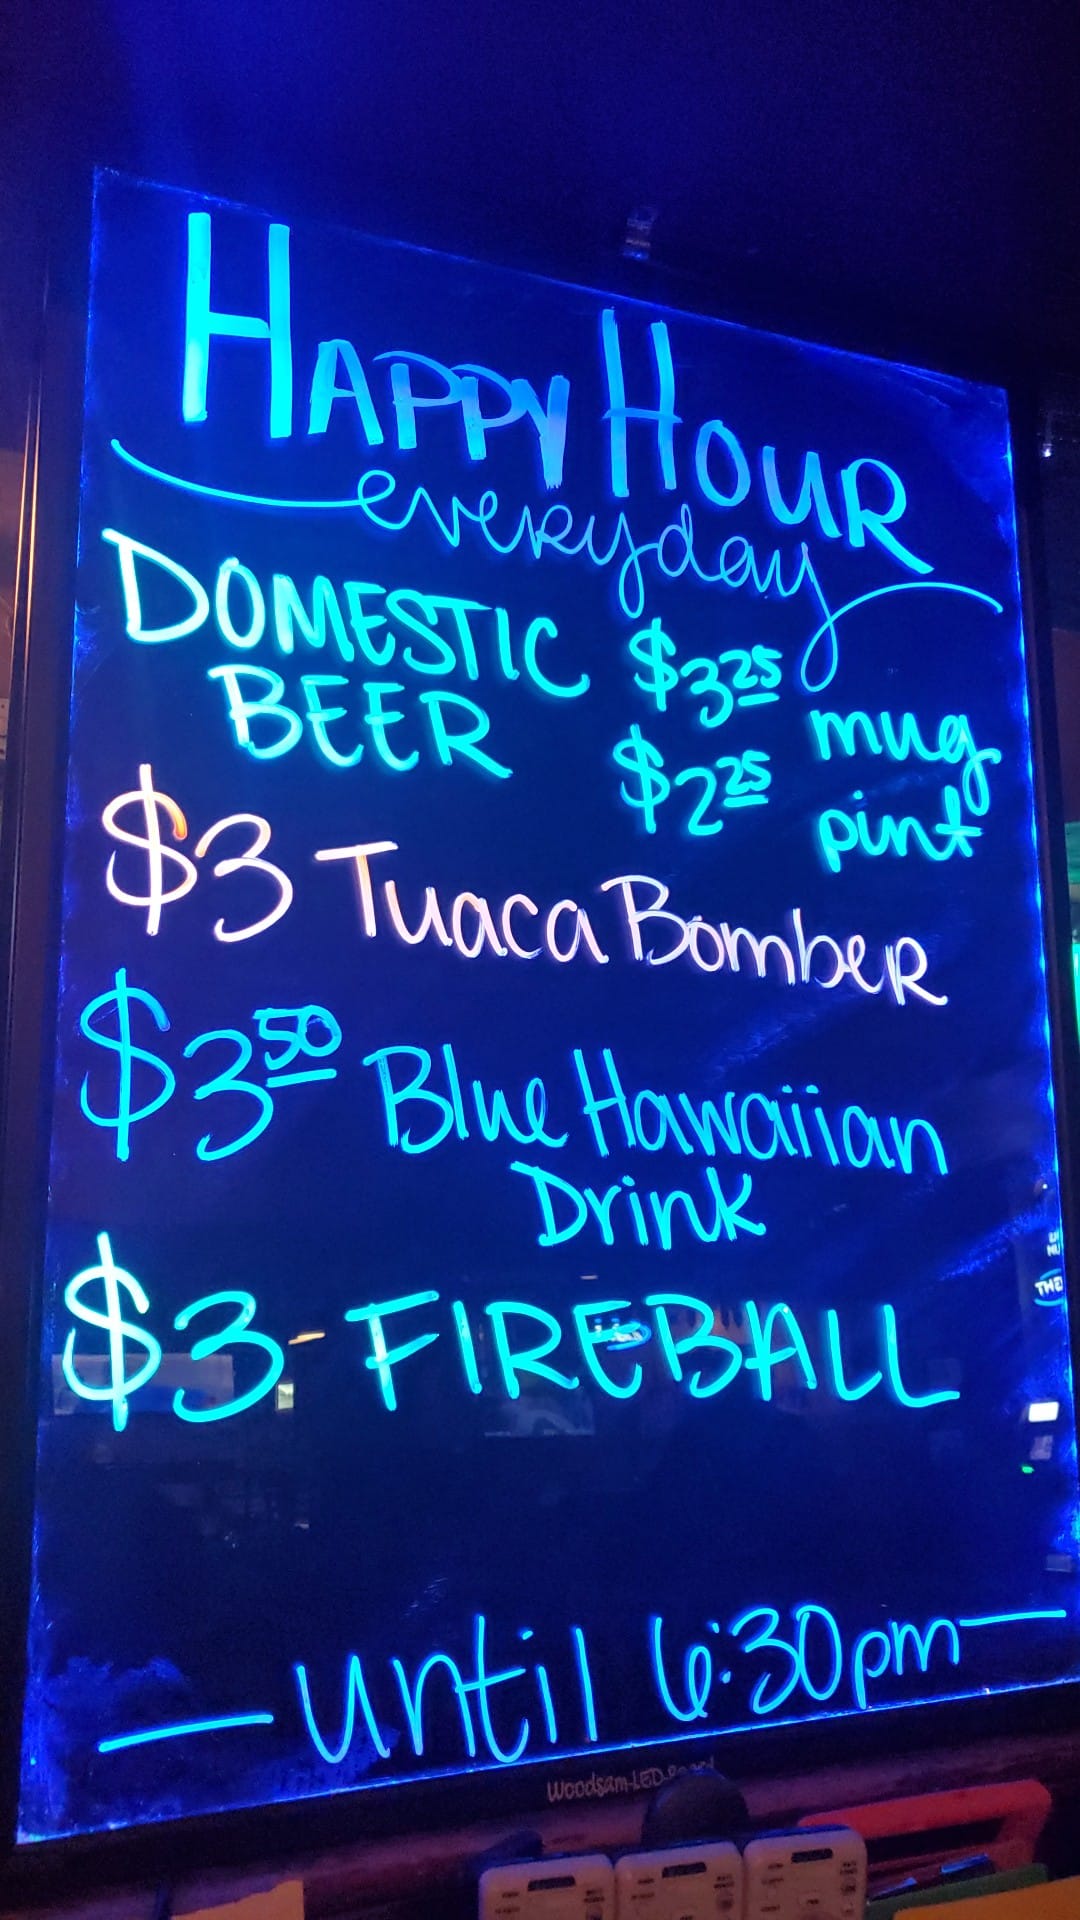 HAPPY HOUR
everyday
DOMESTIC BEER $3.25 mug
$2.25 pint
$3 Tuaca Bomber
$3.50 Blue Hawaiian
Drink
$3 FIREBALL
— until 6:30pm —
Woodsam-LED-Board